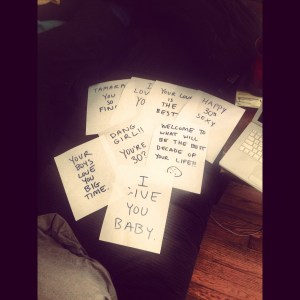 TAMARA
YOU
SO
FINE
I
LOV
YO
YOUR LOVE
IS
THE
BEST
HAPPY
30
SEXY
DANG
GIRL!!
YOU'RE
30?
WELCOME TO
WHAT WILL
BE THE BEST
DECADE OF
YOUR LIFE!!
YOUR
BOYS
LOVE
YOU
BIG
TIME.
I
GIVE
YOU
BABY.